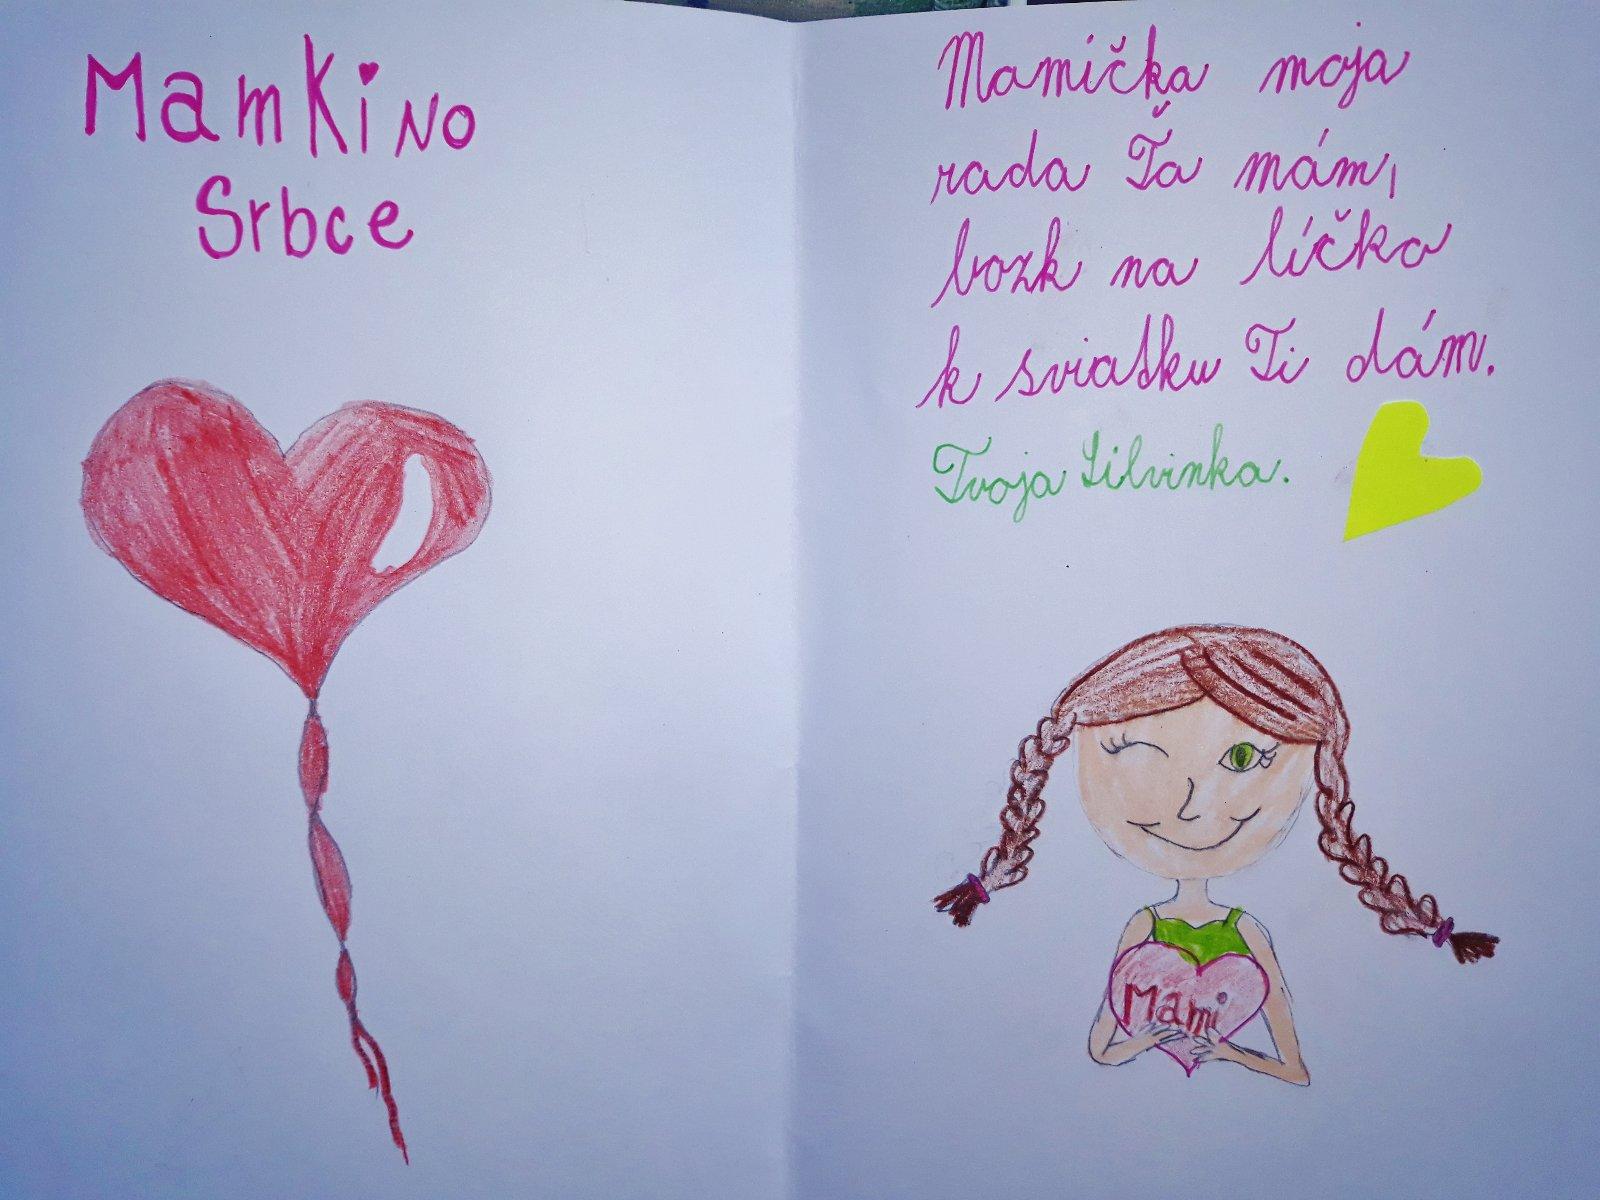 Mamkino
Srbce
Mamička moja
rada Ťa mám,
bozk na líčko
k sviatku Ti dám.
Tvoja Silvinka.
Mami